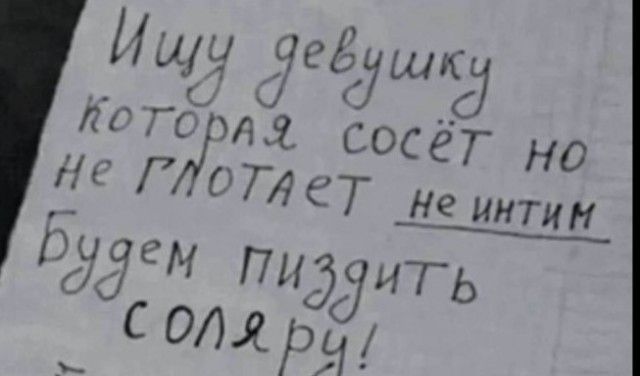 Ищу девушку
которая сосёт но
не глотает не интим
Будем пиздить
соляру!